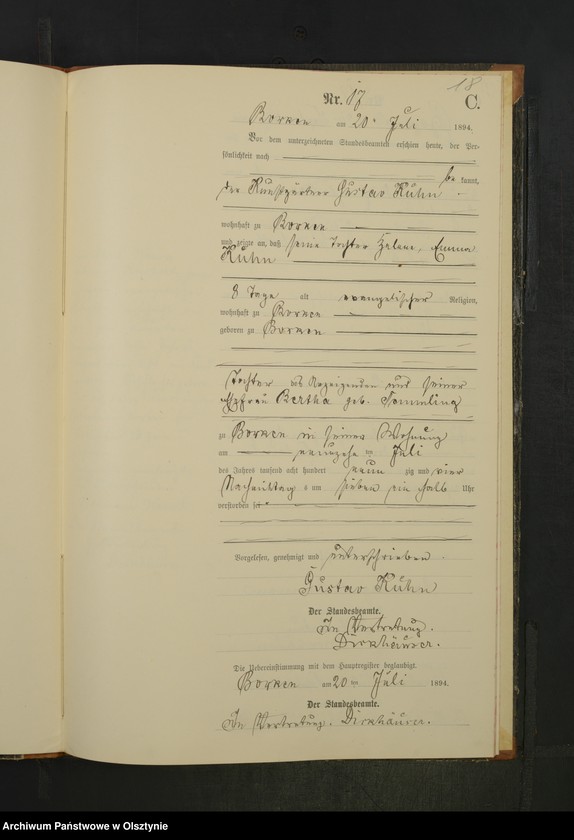 18
Nr. 17
C.
Borken am 20. Juli 1894.
Vor dem unterzeichneten Standesbeamten erschien heute, der Per-
sönlichkeit nach
be kannt,
der Kunstgärtner Gustav Kühn
wohnhaft zu Borken
und zeigte an, daß seine Tochter Helene, Emma
Kühn
8 Tage alt evangelischer Religion,
wohnhaft zu Borken
geboren zu Borken
Tochter des Anzeigenden und seiner
Ehefrau Bertha geb. Sommling
zu Borken in seiner Wohnung
am neunzehn ten Juli
des Jahres tausend acht hundert neun zig und vier
Nachmittag s um sieben ein halb Uhr
verstorben sei
Vorgelesen, genehmigt und unterschrieben
Gustav Kühn
Der Standesbeamte.
In Vertretung.
Dickhäuser.
Die Uebereinstimmung mit dem Hauptregister beglaubigt.
Borken am 20 ten Juli 1894.
Der Standesbeamte.
In Vertretung. Dickhäuser.
Archiwum Państwowe w Olsztynie